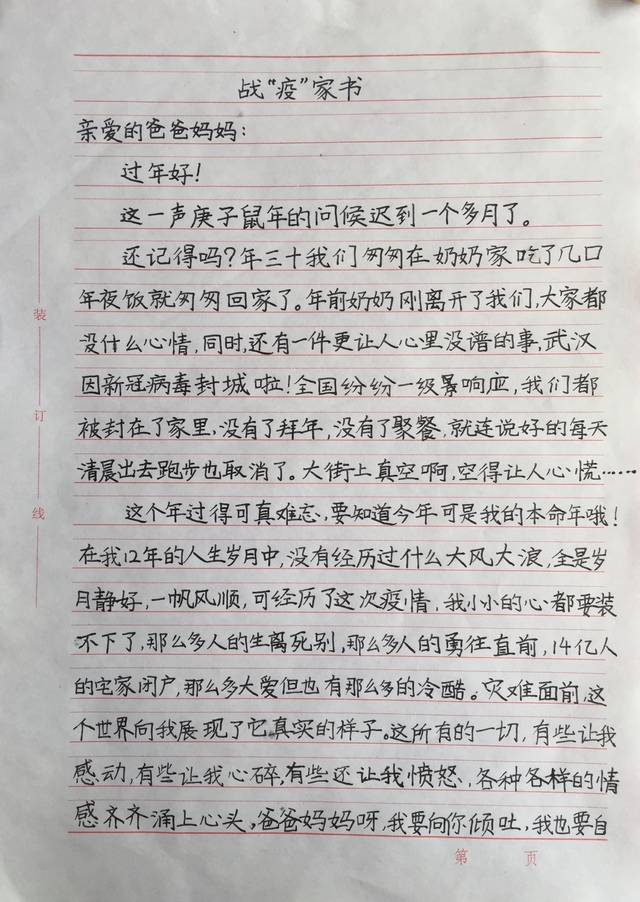 战“疫”家书
亲爱的爸爸妈妈：
过年好！
这一声庚子鼠年的问候迟到一个多月了。
还记得吗？年三十我们匆匆在奶奶家吃了几口
年夜饭就匆匆回家了。年前奶奶刚离开了我们，大家都
没什么心情，同时，还有一件更让人心里没谱的事，武汉
因新冠病毒封城啦！全国纷纷一级影响应，我们都
被封在了家里，没有了拜年，没有了聚餐，就连说好的每天
清晨出去跑步也取消了。大街上真空啊，空得让人心慌……
这个年过得可真难忘，要知道今年可是我的本命年哦！
在我12年的人生岁月中，没有经历过什么大风大浪，全是岁
月静好，一帆风顺，可经历了这次疫情，我小小的心都要装
不下了，那么多人的生离死别，那么多人的勇往直前，14亿人
的宅家闭户，那么多大爱但也有那么多的冷酷。灾难面前，这
个世界向我展现了它真实的样子。这所有的一切，有些让我
感动，有些让我心碎，有些还让我愤怒，各种各样的情
感齐齐涌上心头。爸爸妈妈呀，我要向你倾吐，我也要自
装
订
线
第 页